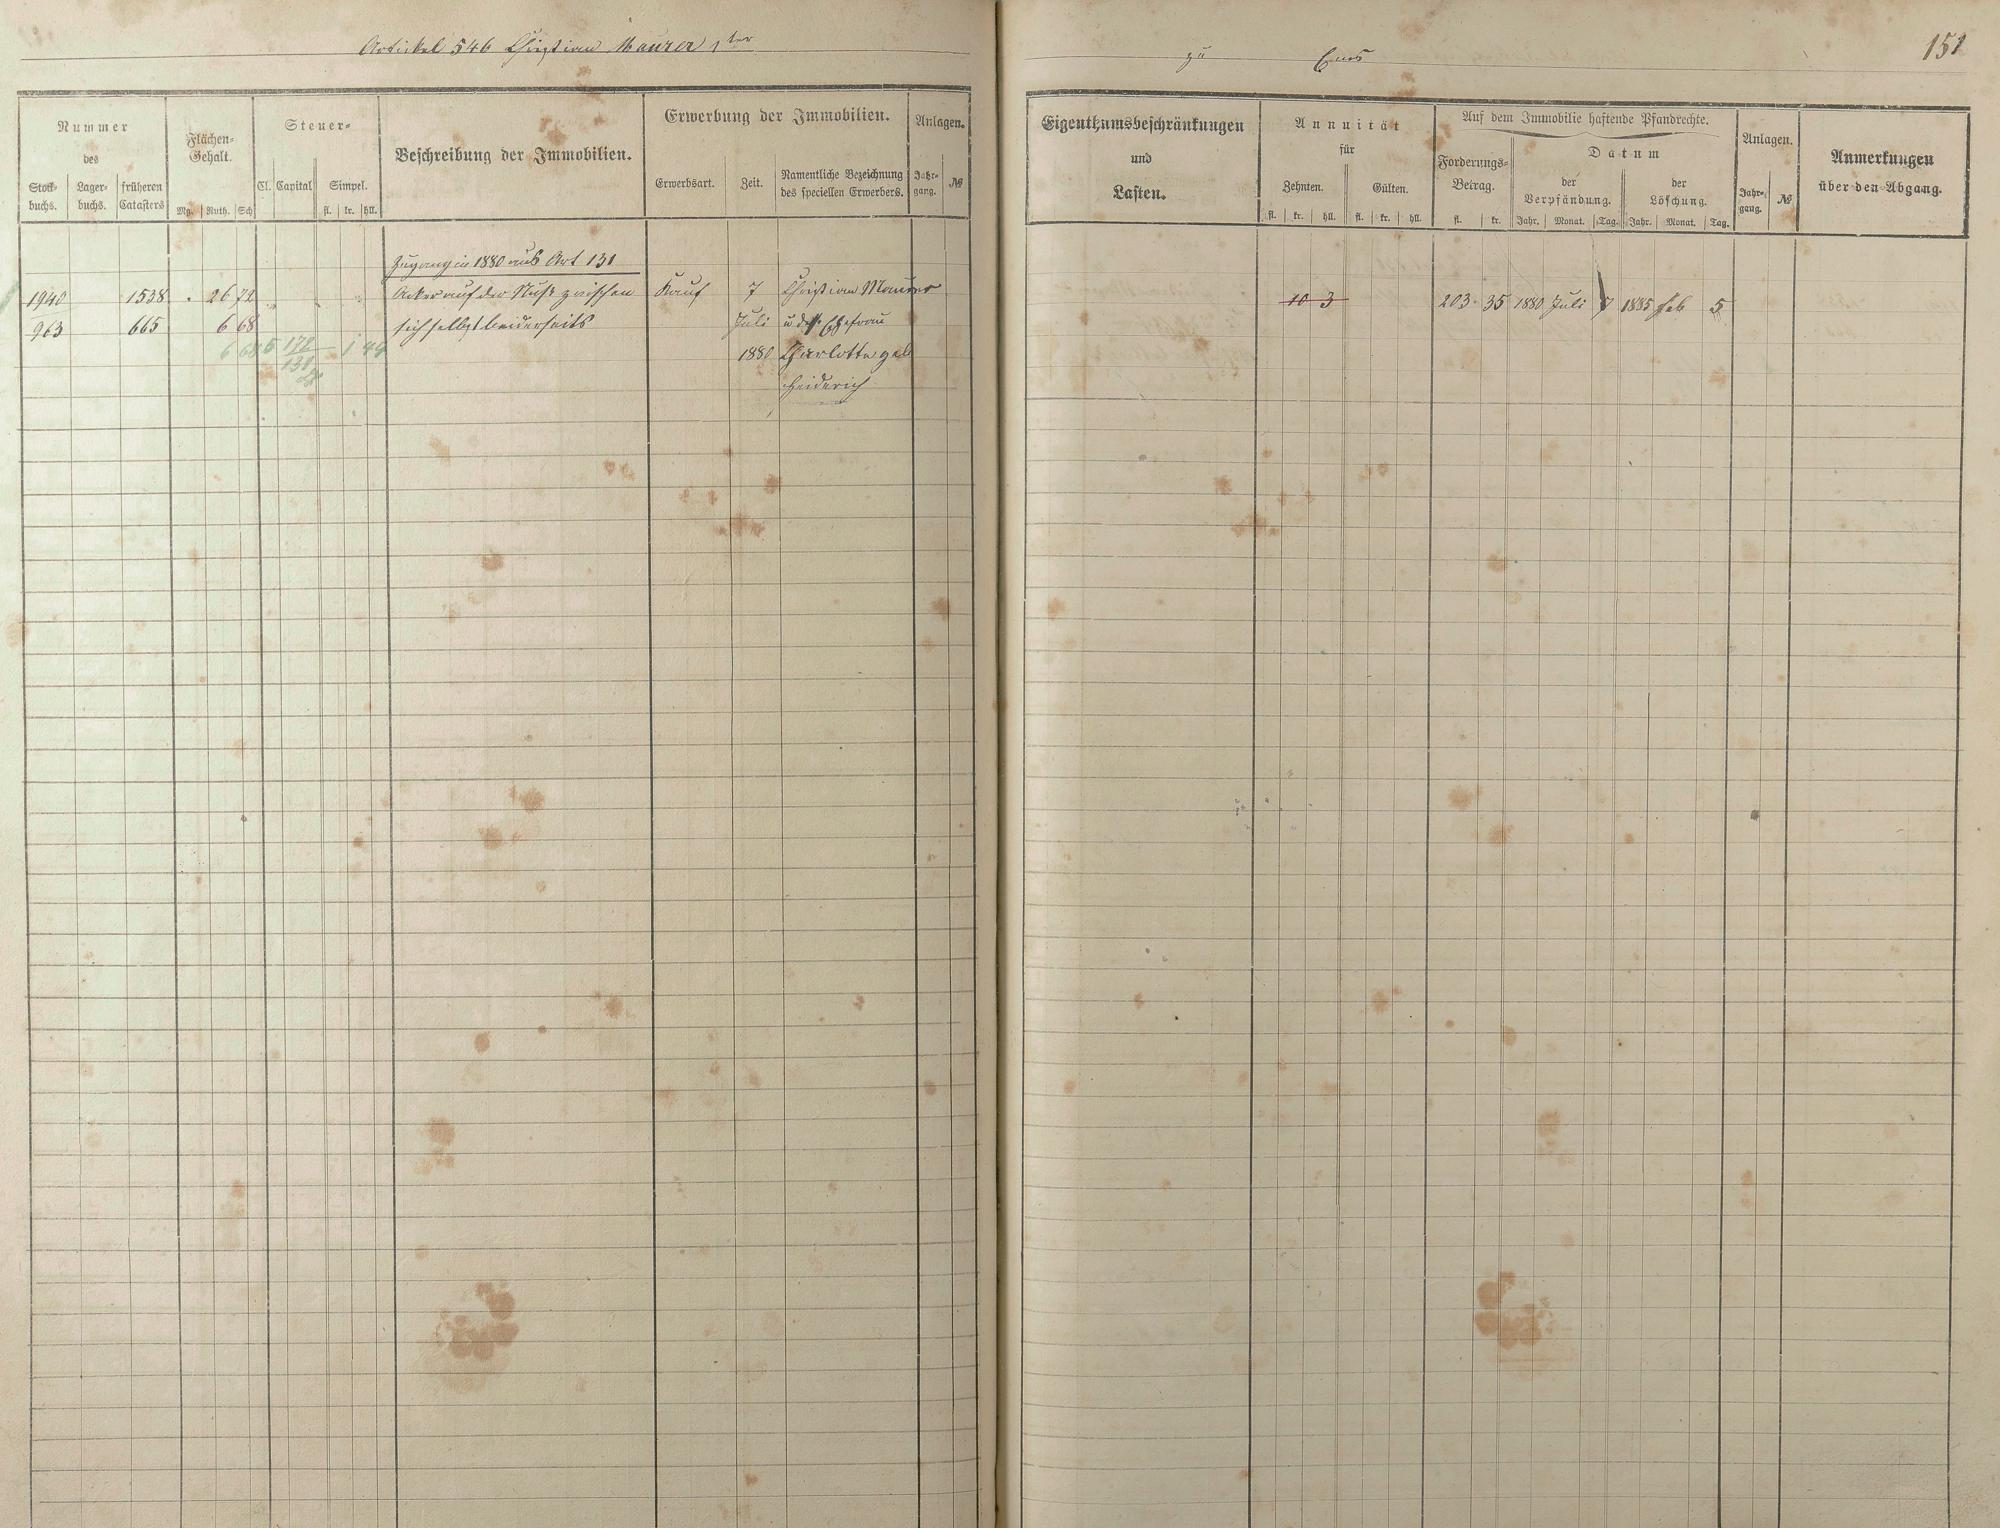 Artickel 546 Christian Maurer 1ter
zu Ems
151
Nummer
des
Stock-
buchs.
Lager-
buchs.
früheren
Catasters
Flächen-
Gehalt.
Mg. Ruth. Sch
Steuer-
Cl. Capital Simpel.
fl. kr. hll.
Beschreibung der Immobilien.
Erwerbung der Immobilien.
Erwerbsart. Zeit.
Namentliche Bezeichnung
des speciellen Erwerbers.
Anlagen.
Jahr-
gang.
№
Eigenthumsbeschränkungen
und
Lasten.
Annuität
für
Zehnten. Gülten.
fl. kr. hll. fl. kr. hll.
Auf dem Immobilie haftende Pfandrechte.
Forderungs-
Betrag.
fl. kr.
Datum
der
Verpfändung.
Jahr. Monat. Tag.
der
Löschung.
Jahr. Monat. Tag.
Anlagen.
Jahr-
gang.
№
Anmerkungen
über den Abgang.
Zugang in 1880 aus Art 131
1940 1538 26 72 Acker auf der zwischen Kauf 7 Christian Maurer 10 3 203 35 1880 Juli 7 1885 Feb 5
963 665 6 68 sich selbst beiderseits Juli u dess. Ehefrau
6 68 5 172 1 44 1880 Charlotte geb
131
Heiderich